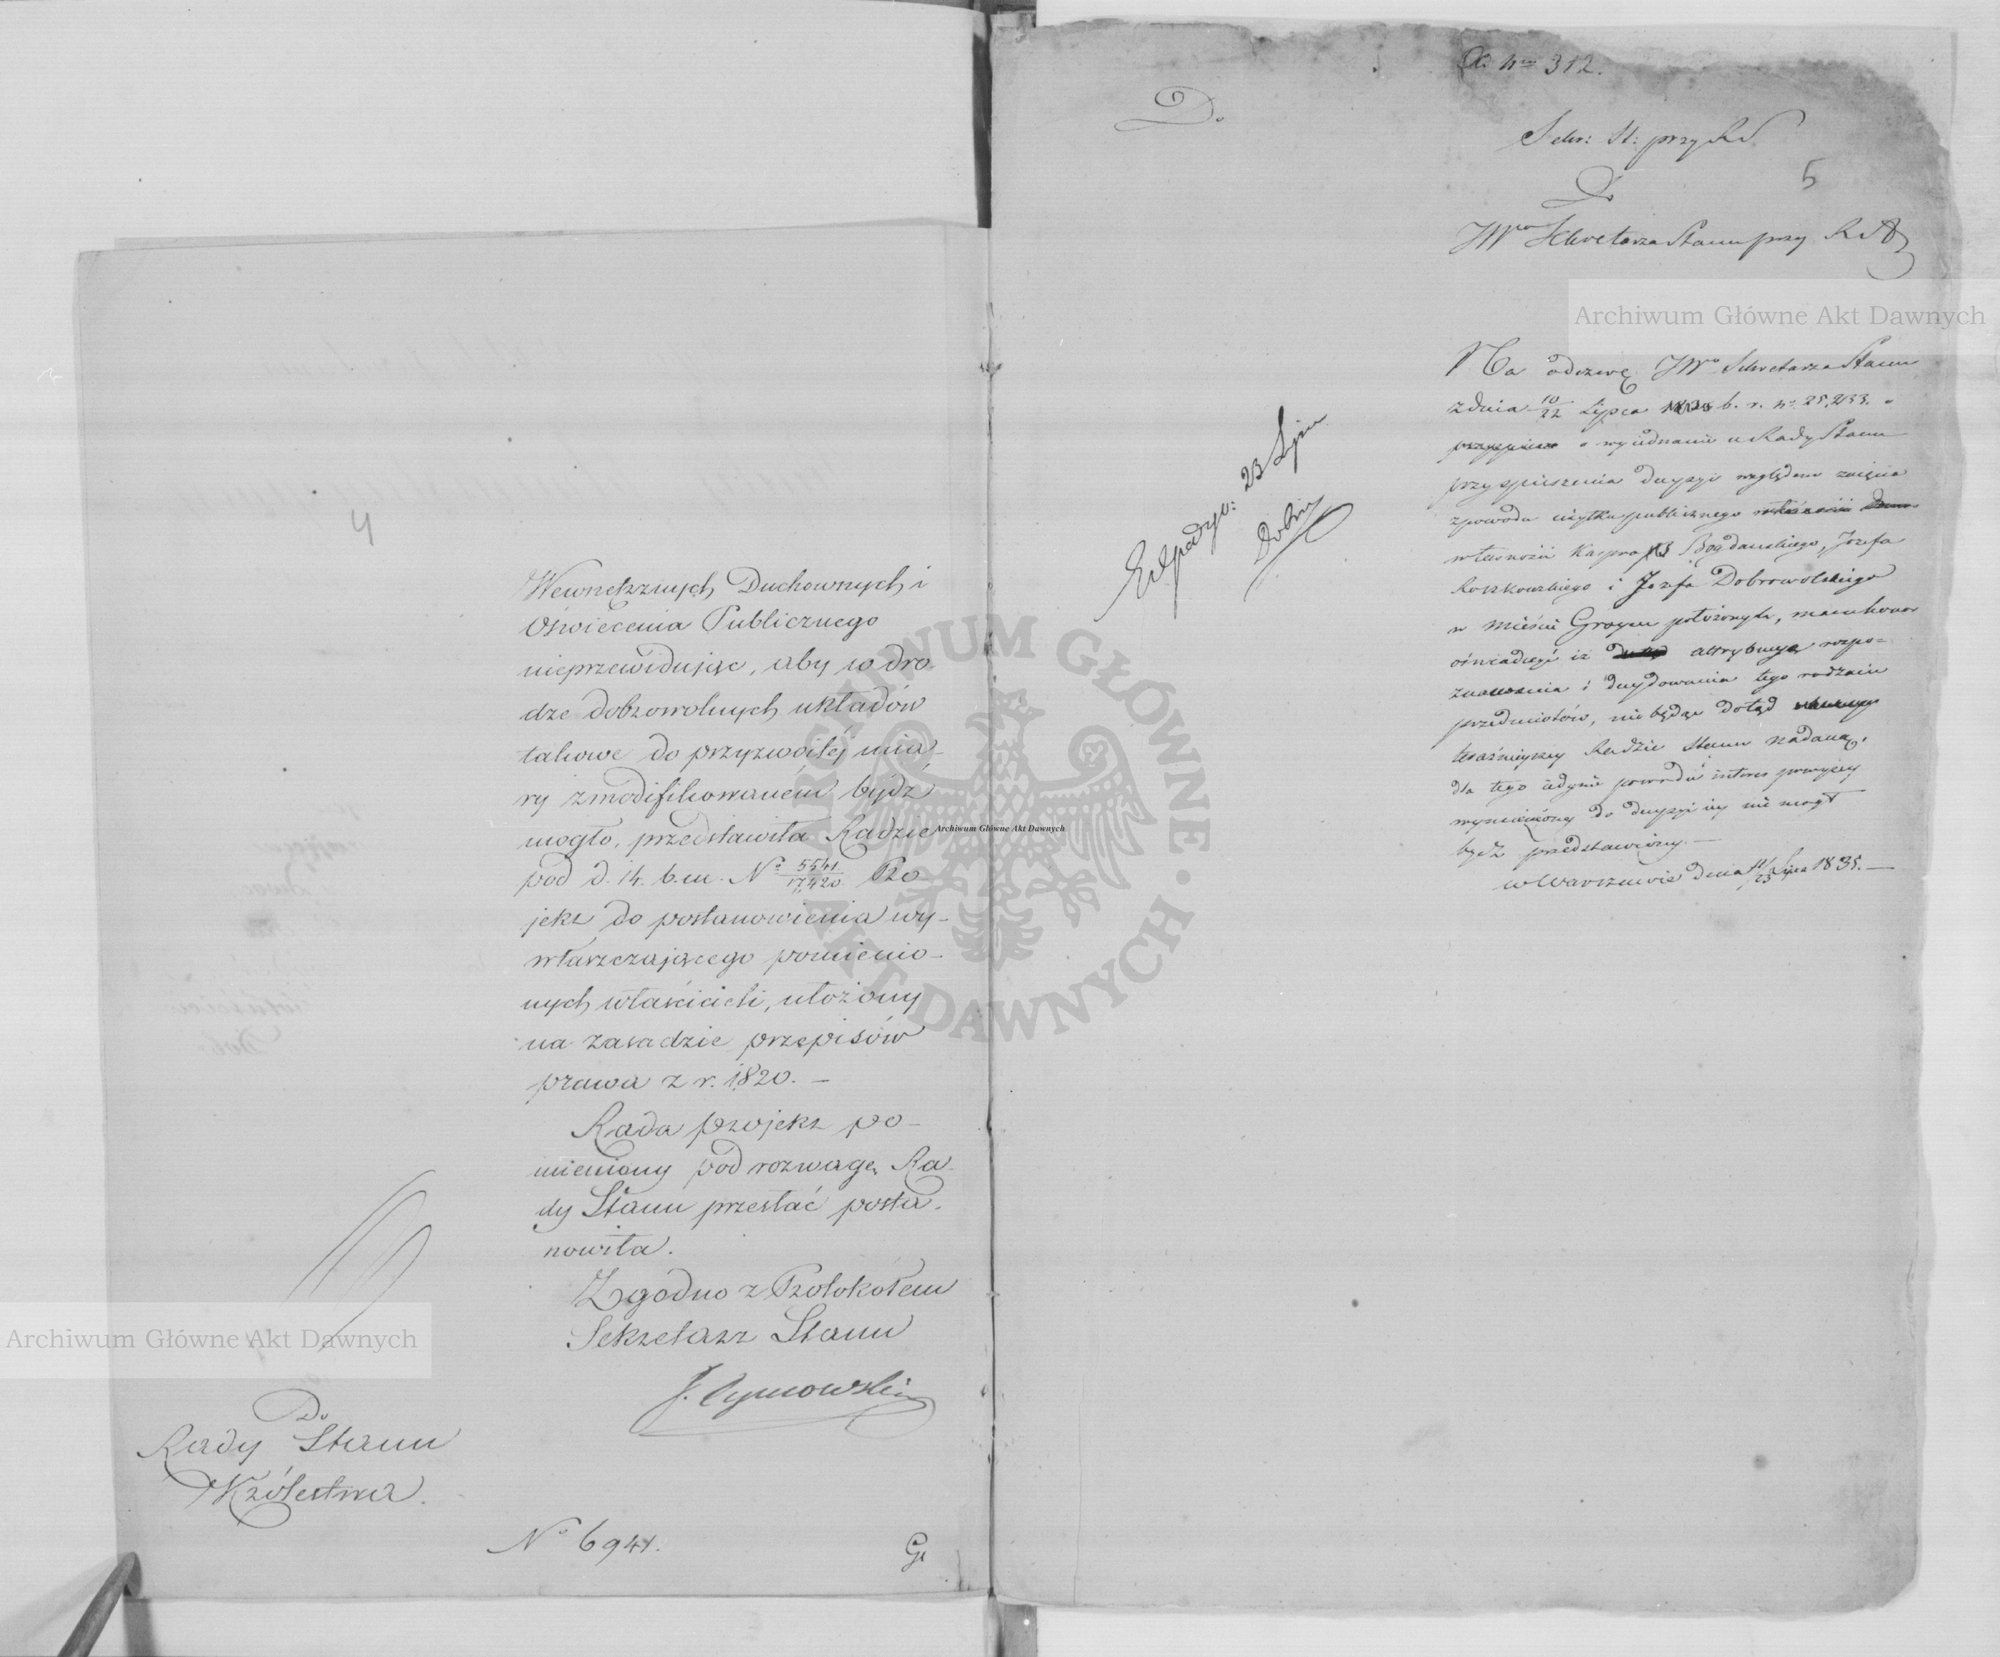 4
Wewnętrznych Duchownych i
Oświecenia Publicznego
nieprzewidując, aby w dro-
dze dobrowolnych układów
takowe do przyzwoitéj mia-
ry zmodifikowaném bydź
mogło, przedstawiła Radzie
pod d. 14. b. m. No 5541/17,420 Pro-
jekt do postanowienia wy-
właszczającego pomienio-
nych właścicieli, ułożony
na zasadzie przepisów
prawa z r. 1820. —
Rada projekt po-
mieniony pod rozwagę Ra-
dy Stanu przesłać posta-
nowiła.
Zgodno z Protokołem
Sekretarz Stanu
J. Tymowski
Do
Rady Stanu
Królestwa.
No 6941.
D.
No 312.
Sekr: St: przy RS
5
Do
JWo Sekretarza Stanu przy RA
Expedyo: 23 Lipca
Na odezwę JWo Sekretarza Stanu
z dnia 10/22 Lipca b. r. No 25,233.
o wyiednanie u Rady Stanu
przyspieszenia decyzyi względem zaięcia
z powodu użytku publicznego
własności Kaspra Bogdańskiego, Józefa
Roszkowskiego i Jozefa Dobrowolskiego
w mieście Groycu położonych, mam honor
oświadczyć iż attrybucya rozpo-
znawania i decydowania tego rodzaiu
przedmiotów, nie będąc dotąd
teraźnieyszey Radzie Stanu nadaną,
dla tego iedynie powodu interes powyżey
wymieniony do decyzyi iey nie mogł
bydź przedstawiony. —
w Warszawie dnia 11/23 Lipca 1835. —
Archiwum Główne Akt Dawnych
Archiwum Główne Akt Dawnych
Archiwum Główne Akt Dawnych
ARCHIWUM GŁÓWNE AKT DAWNYCH